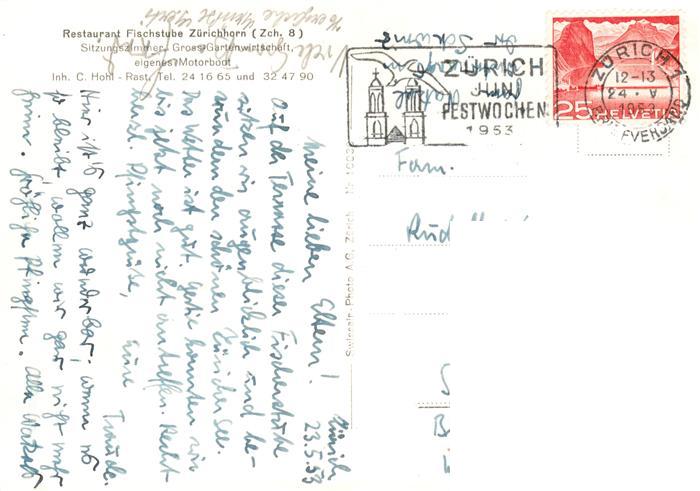 Restaurant Fischstube Zürichhorn (Zch. 8)
Sitzungszimmer, Grosse Gartenwirtschaft,
eigenes Motorboot
Inh. C. Hohl - Rast, Tel. 24 16 65 und 32 47 90
ZÜRICH
FESTWOCHEN
1953
ZÜRICH 1
12-13
24. V
1953
BRIEFVERSAND
25 HELVETIA
Swissair-Photo A.G., Zürich
Fam.
Rud
Zürich
23.5.53
Meine lieben Eltern!
Auf der Terrasse dieser Fischerstube
sitzen wir augenblicklich und be-
wundern den schönen Züricher See.
Das Wetter ist gut. Gertie konnten wir
bis jetzt noch nicht antreffen. Recht
herzl. Pfingstgrüsse,
Eure
Traude.
Hier ist es ganz wunderbar, wenn es
so bleibt, wollen wir gar nicht mehr
heim.